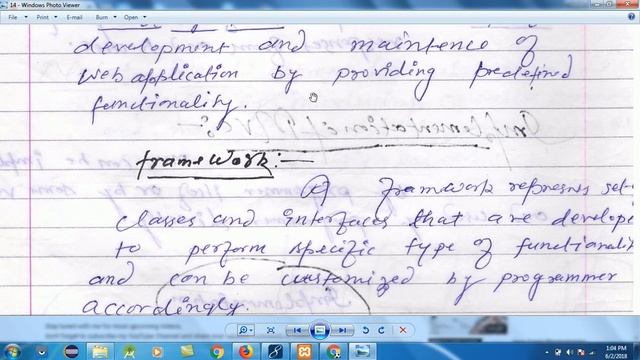 14 - Windows Photo Viewer
File Print E-mail Burn Open
development and maintence of
web application by providing predefined
functionality.
framework:-
A framework represns set
classes and interfaces that are develope
to perform specific type of functionali
and can be customized by programmer
accordingly.
1:04 PM
6/2/2018